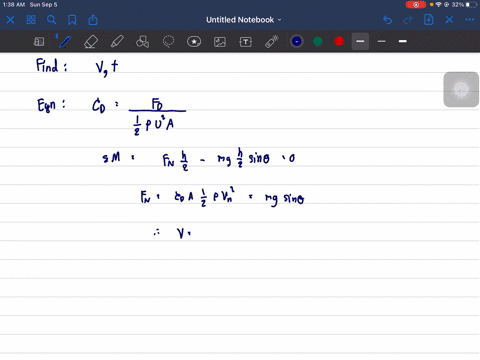 1:38 AM Sun Sep 5
32%
Untitled Notebook
Find : V, t
Eqn : C_D = F_D / (1/2 ρ U² A)
ΣM = F_N h/2 - mg h/2 sinθ = 0
F_N = C_D A 1/2 ρ V_n² = mg sinθ
∴ V =